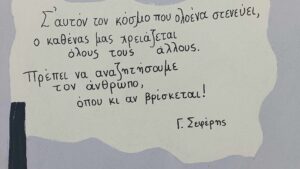 Σ'αυτόν τον κόσμο που ολοένα στενεύει,
ο καθένας μας χρειάζεται
όλους τους άλλους.
Πρέπει να αναζητήσουμε
τον άνθρωπο,
όπου κι αν βρίσκεται!
Γ. Σεφέρης